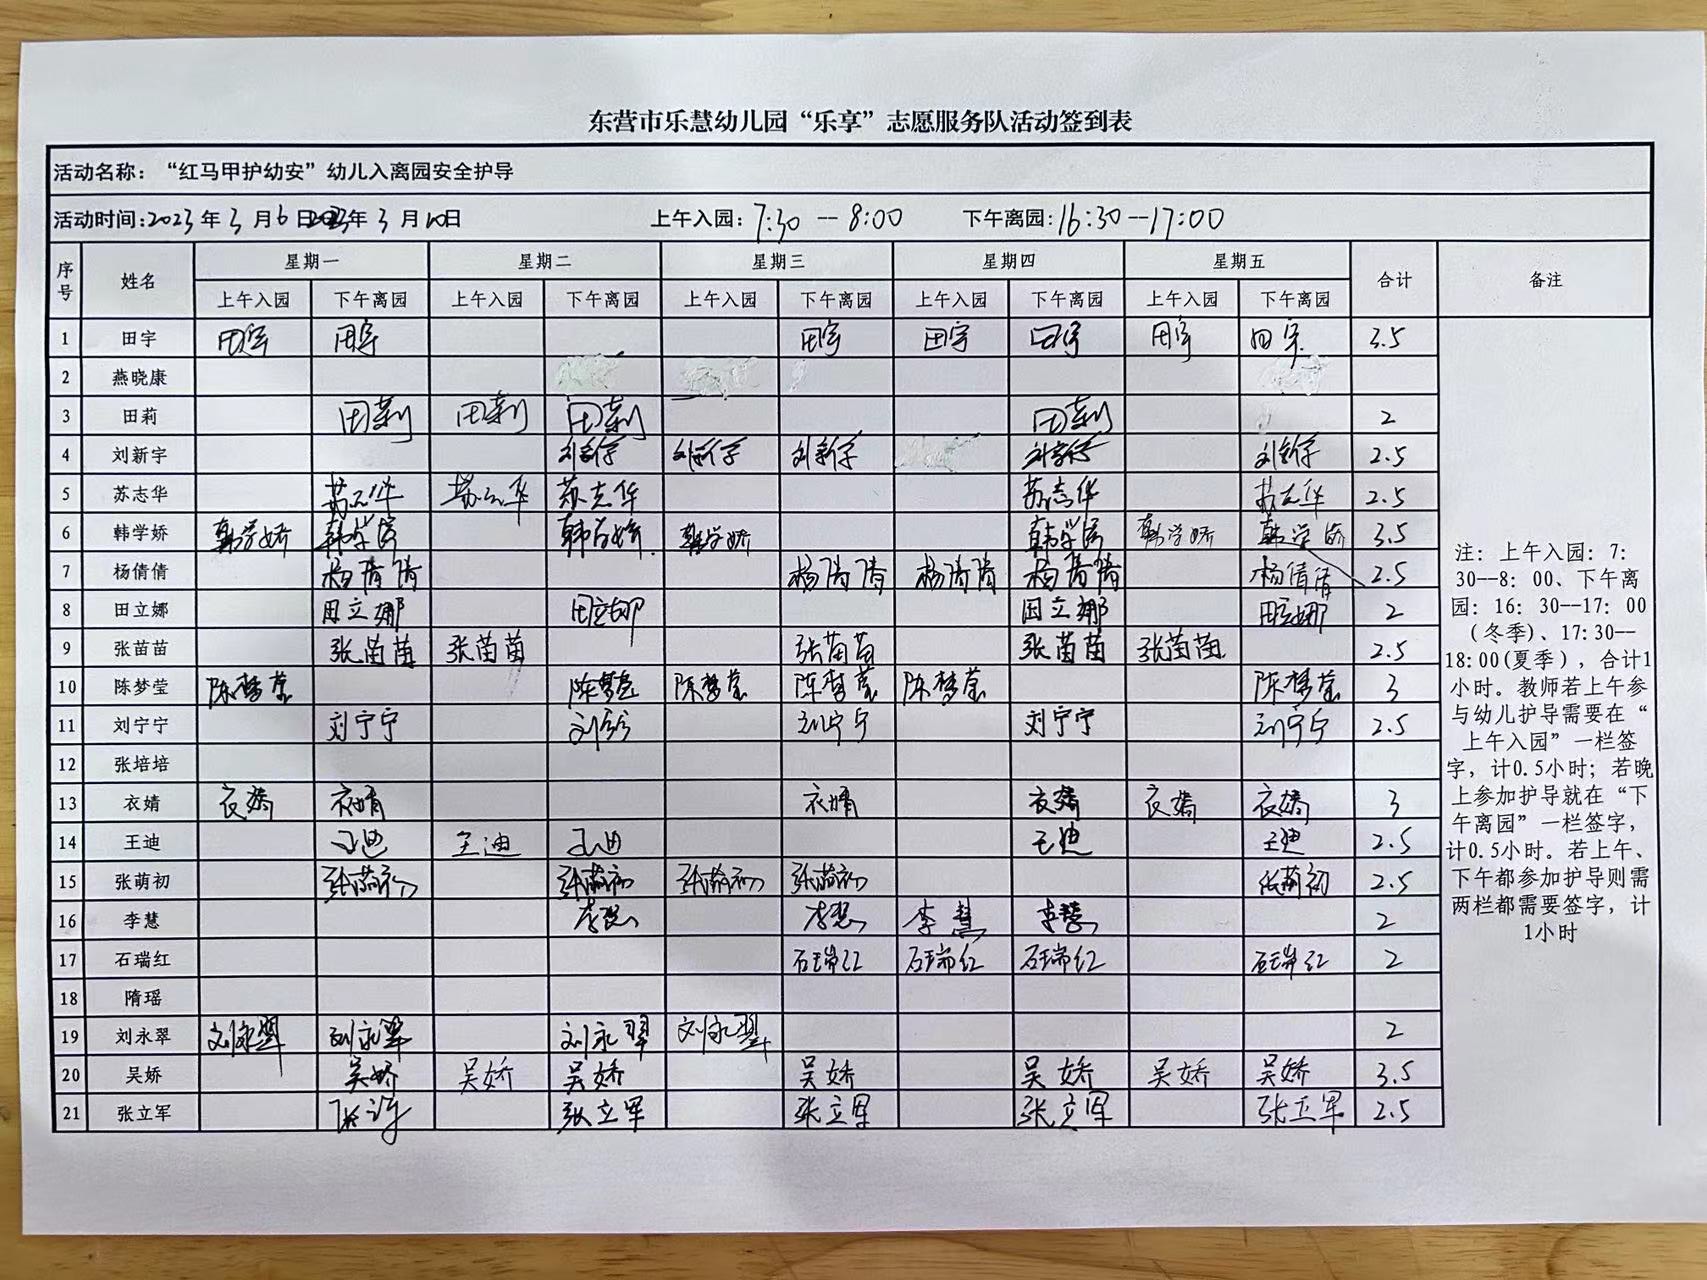 东营市乐慧幼儿园“乐享”志愿服务队活动签到表
活动名称：“红马甲护幼安”幼儿入离园安全护导
活动时间:2023年3月6日2023年3月10日 上午入园:7:30--8:00 下午离园:16:30--17:00
序号 姓名 星期一 星期二 星期三 星期四 星期五 合计 备注
上午入园 下午离园 上午入园 下午离园 上午入园 下午离园 上午入园 下午离园 上午入园 下午离园
1 田宇 田宇 田宇 田宇 田宇 田宇 田宇 田宇 3.5
2 燕晓康
3 田莉 田莉 田莉 田莉 田莉 2
4 刘新宇 刘新宇 刘新宇 刘新宇 刘新宇 刘新宇 2.5
5 苏志华 苏志华 苏志华 苏志华 苏志华 苏志华 2.5
6 韩学娇 韩学娇 韩学娇 韩学娇 韩学娇 韩学娇 韩学娇 韩学娇 3.5
7 杨倩倩 杨倩倩 杨倩倩 杨倩倩 杨倩倩 杨倩倩 2.5
8 田立娜 田立娜 田立娜 田立娜 田立娜 2
9 张苗苗 张苗苗 张苗苗 张苗苗 张苗苗 张苗苗 2.5
10 陈梦莹 陈梦莹 陈梦莹 陈梦莹 陈梦莹 陈梦莹 陈梦莹 3
11 刘宁宁 刘宁宁 刘宁宁 刘宁宁 刘宁宁 刘宁宁 2.5
12 张培培
13 衣婧 衣婧 衣婧 衣婧 衣婧 衣婧 衣婧 3
14 王迪 王迪 王迪 王迪 王迪 王迪 2.5
15 张萌初 张萌初 张萌初 张萌初 张萌初 张萌初 2.5
16 李慧 李慧 李慧 李慧 李慧 2
17 石瑞红 石瑞红 石瑞红 石瑞红 石瑞红 2
18 隋瑶
19 刘永翠 刘永翠 刘永翠 刘永翠 刘永翠 2
20 吴娇 吴娇 吴娇 吴娇 吴娇 吴娇 吴娇 吴娇 3.5
21 张立军 张立军 张立军 张立军 张立军 张立军 2.5
注：上午入园：7:
30--8：00、下午离
园：16：30--17：00
(冬季)、17:30--
18:00(夏季)，合计1
小时。教师若上午参
与幼儿护导需要在“
上午入园”一栏签
字，计0.5小时；若晚
上参加护导就在“下
午离园”一栏签字，
计0.5小时。若上午、
下午都参加护导则需
两栏都需要签字，计
1小时